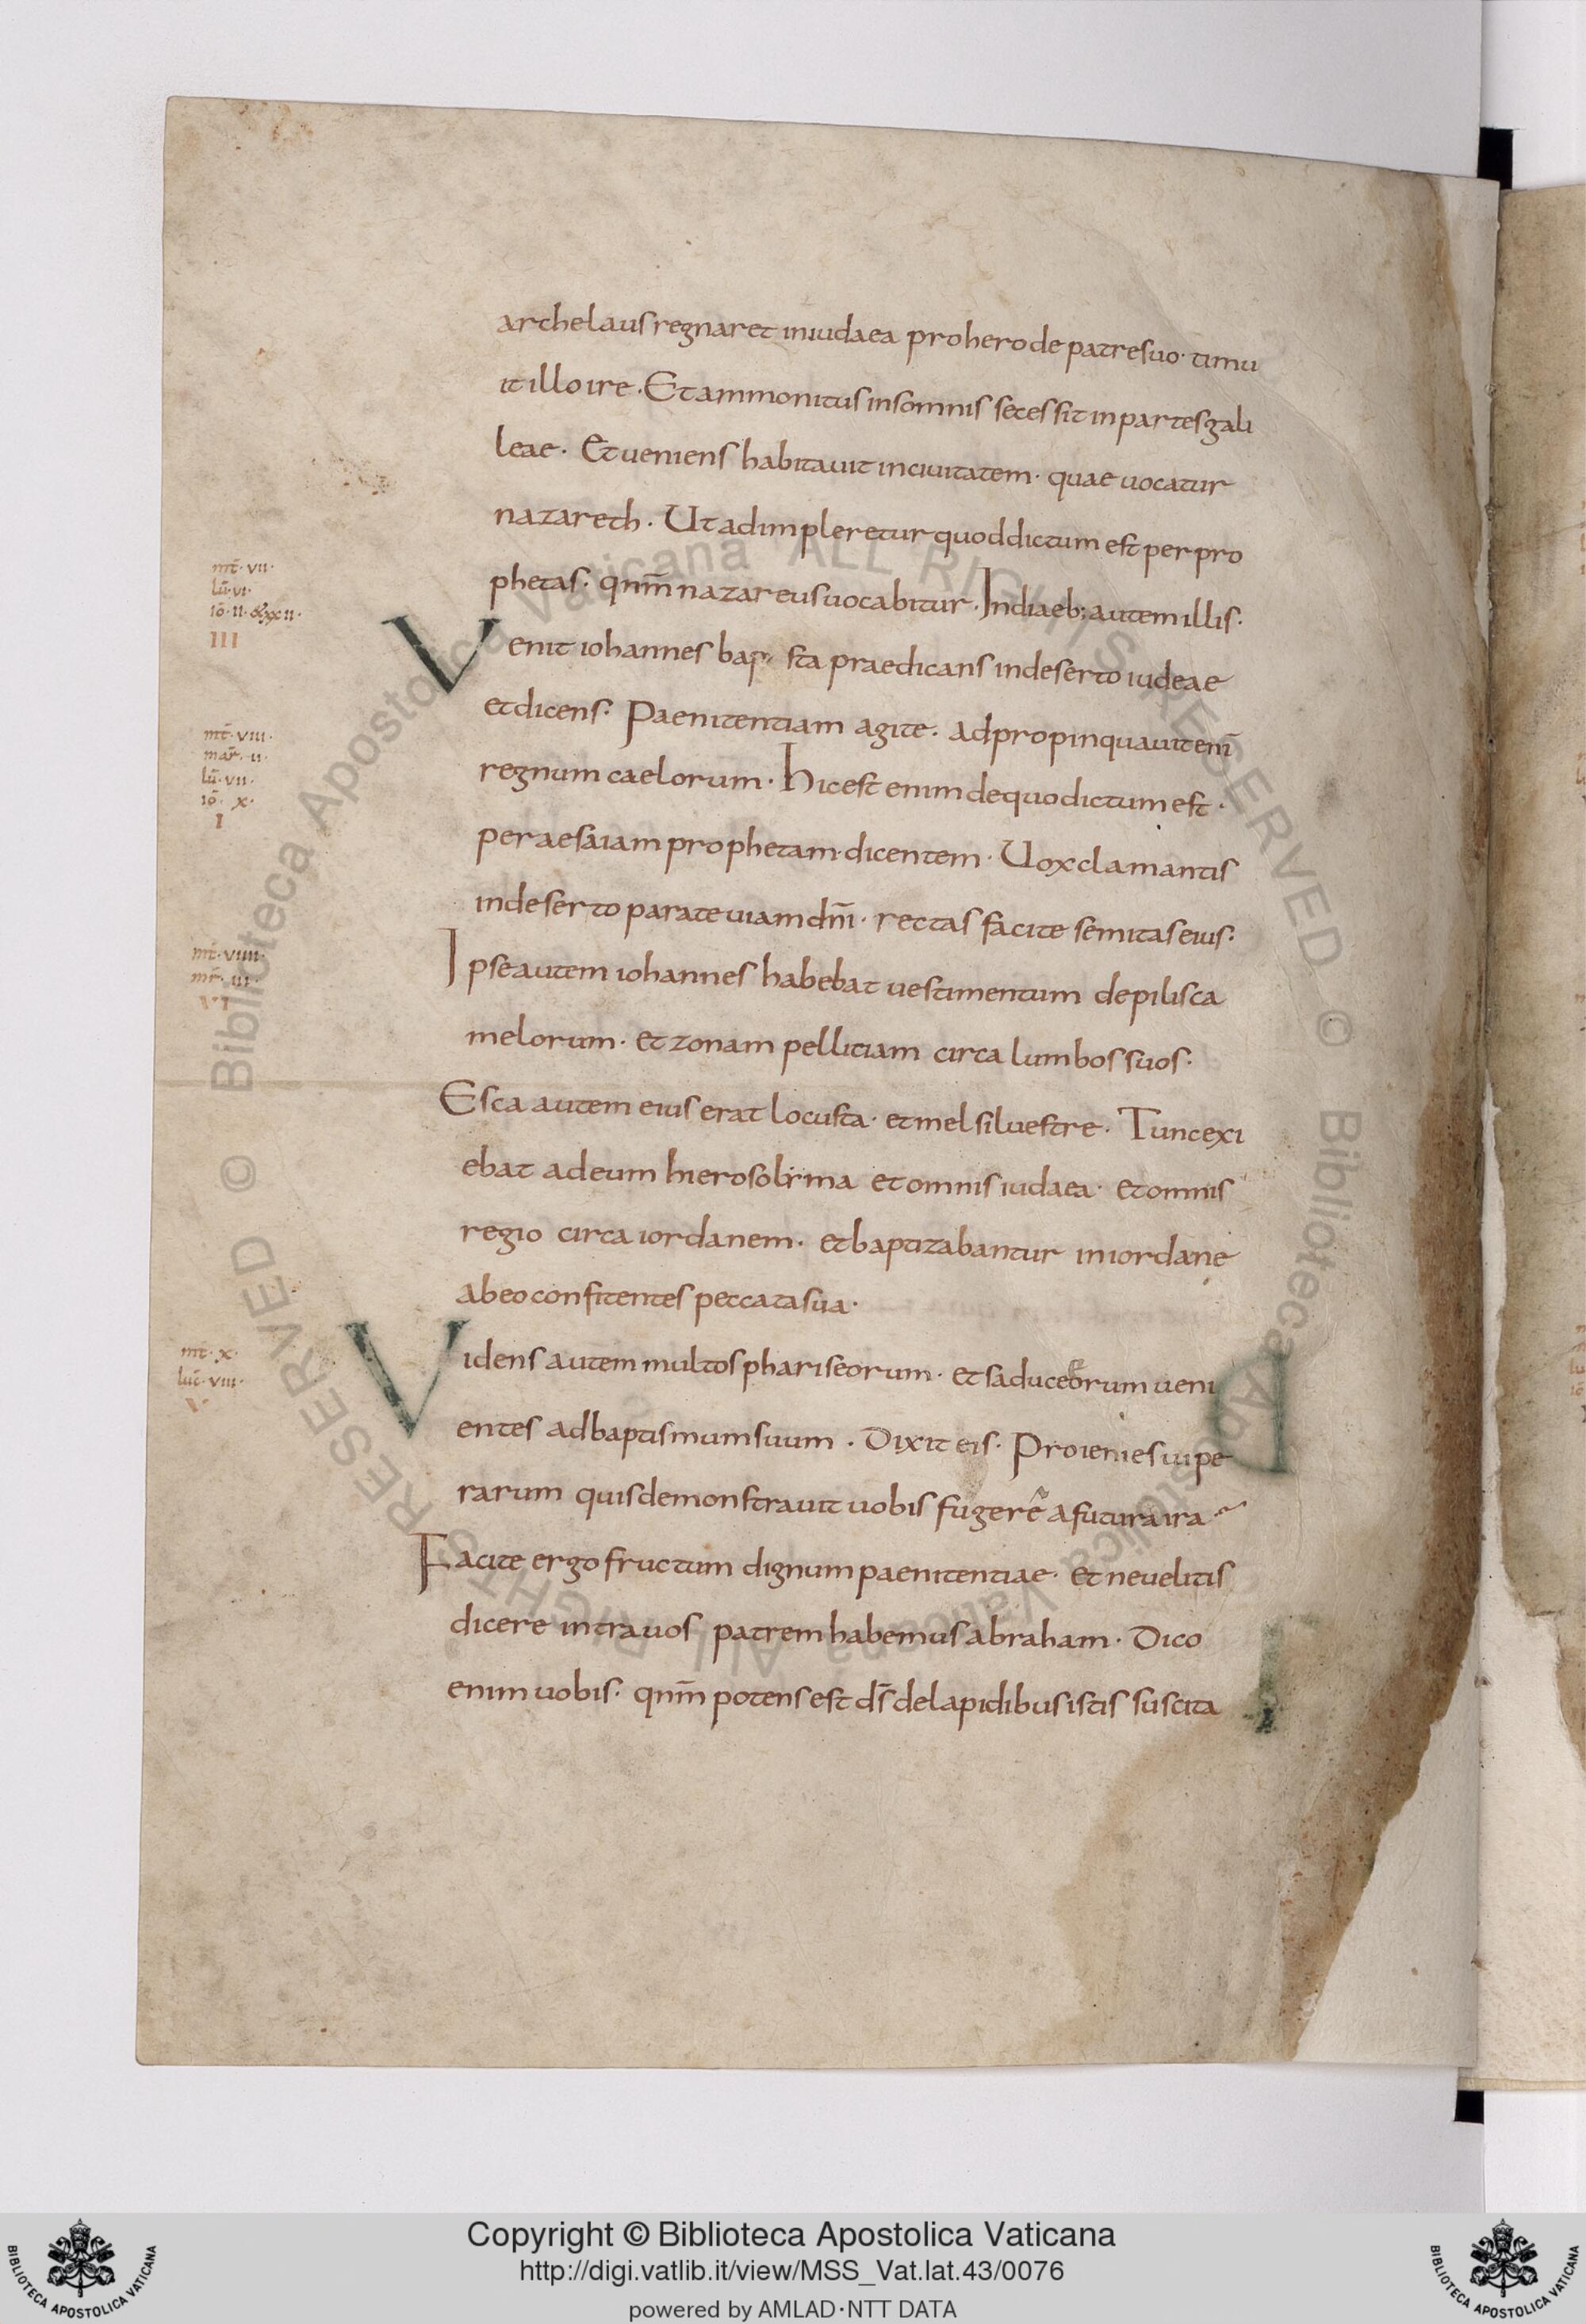 archelaus regnaret in iudaea pro herode patre suo· timu
it illo ire· Et ammonitus in somnis secessit in partes gali
leae· Et ueniens habitauit in ciuitatem· quae uocatur
nazareth· Ut adimpleretur quod dictum est per pro
phetas· qnm̄ nazareus uocabitur· In dieb; autem illis·
mt̄· vii·
lū· vi·
iō· ii· & xxii·
III
Venit iohannes bap sta praedicans in deserto iudeae
et dicens· Paenitentiam agite· adpropinquauit enī
mt̄· viii·
mar̄· ii·
lū· vii·
iō· x·
I
regnum caelorum· Hic est enim de quo dictum est·
per aesaiam prophetam· dicentem· Uox clamantis
in deserto parate uiam dn̄i· rectas facite semitas eius·
mt̄· viiii·
mr̄· iii·
VI
Ipse autem iohannes habebat uestimentum de pilis ca
melorum· et zonam pelliciam circa lumbos suos·
Esca autem eius erat locusta· et mel siluestre· Tunc exi
ebat ad eum hierosolyma et omnis iudaea· et omnis
regio circa iordanem· et baptizabantur in iordane
ab eo confitentes peccata sua·
mt̄· x·
luc̄· viii·
V
Videns autem multos phariseorum· et saduceorum ueni
entes ad baptismum suum· Dixit eis· Proienies uipe
rarum quis demonstrauit uobis fugere a futura ira
Facite ergo fructum dignum paenitentiae· et ne uelitis
dicere intra uos patrem habemus abraham· Dico
enim uobis· qnm̄ potens est ds̄ de lapidibus istis suscita
© Biblioteca Apostolica Vaticana ALL RIGHTS RESERVED © Biblioteca Apostolica Vaticana ALL RIGHTS RESERVED
Copyright © Biblioteca Apostolica Vaticana
http://digi.vatlib.it/view/MSS_Vat.lat.43/0076
powered by AMLAD·NTT DATA
BIBLIOTECA APOSTOLICA VATICANA
BIBLIOTECA APOSTOLICA VATICANA